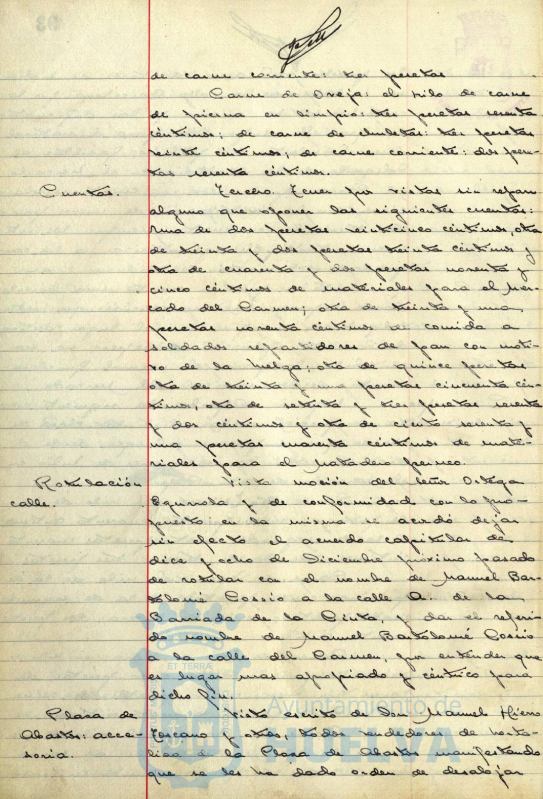 de carne corriente: tres pesetas
Carne de Oveja: el kilo de carne
de pierna en limpio: tres pesetas sesenta
céntimos; de carne de chuletas: tres pesetas
veinte céntimos; de carne corriente: dos pese-
tas sesenta céntimos.
Cuentas.
Tercero. Tener por vistas sin reparo
alguno que oponer las siguientes cuentas:
Una de dos pesetas veinticinco céntimos, otra
de treinta y dos pesetas treinta céntimos y
otra de cuarenta y dos pesetas noventa y
cinco céntimos de materiales para el Mer-
cado del Carmen; otra de treinta y una
pesetas noventa céntimos de comida a
soldados repartidores de pan con moti-
vo de la huelga; otra de quince pesetas
otra de treinta y una pesetas cincuenta cén-
timos, otra de setenta y tres pesetas sesenta
y dos céntimos y otra de ciento sesenta y
una pesetas céntimos de mate-
riales para el Matadero
Rotulación
calle.
Vista moción del Señor Ortega
y de conformidad con lo pro-
puesto en la misma se acordó dejar
sin efecto el acuerdo capitular de
diez y ocho de Diciembre próximo pasado
de rotular con el nombre de Manuel Bar-
tolomé Cossio a la calle A. de la
Barriada de la Cinta, y dar el referi-
do nombre de Manuel Bartolomé Cossio
a la calle del Carmen, por entender que
es lugar mas apropiado y céntrico para
dicho fin.
Plaza de
Abastos: acce-
soria.
Visto escrito de Don Manuel Hierro
Toscano y otros, todos vendedores de horta-
liza de la Plaza de Abastos manifestando
que se les ha dado orden de desalojar
ET TERRÆ
Ayuntamiento de
HUELVA